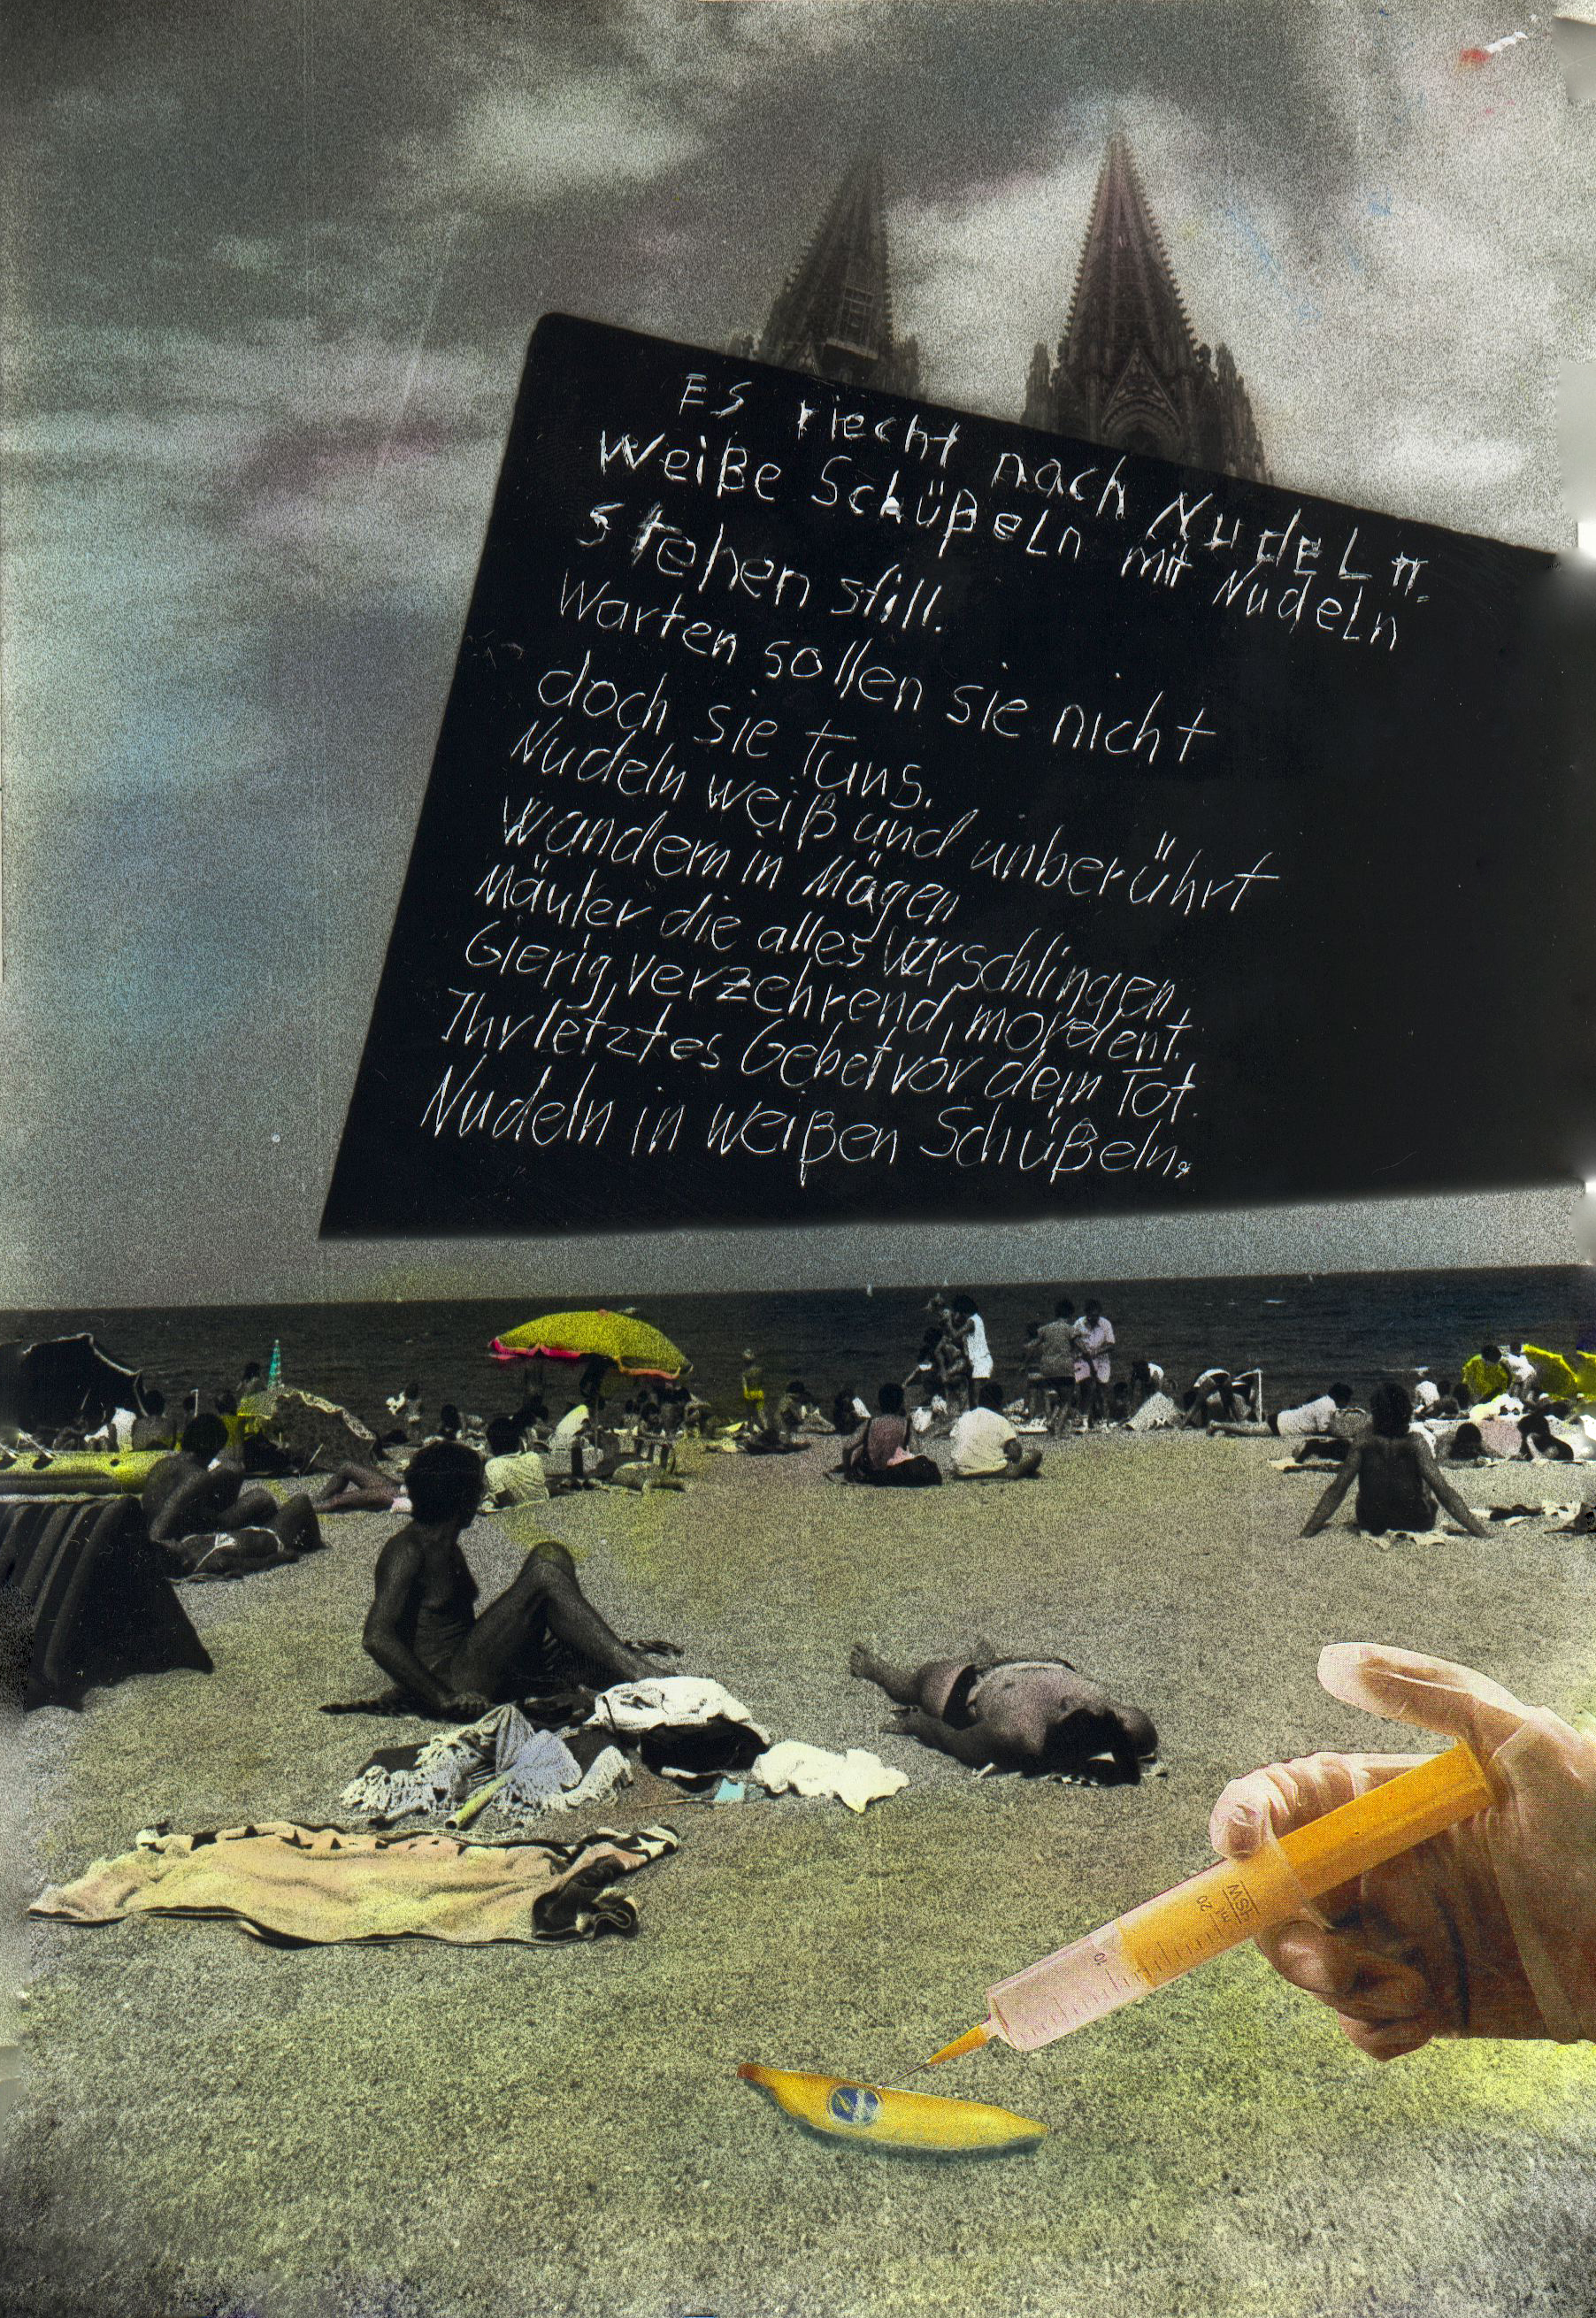 ES riecht nach Nudeln.
Weiße Schüßeln mit Nudeln
stehen still.
Warten sollen sie nicht
doch sie tuns.
Nudeln weiß und unberührt
Wandern in Mägen
Mäuler die alles verschlingen.
Gierig, verzehrend, mordent.
Ihr letztes Gebet vor dem Tot.
Nudeln in weißen Schüßeln.
HSW
ml 20
10